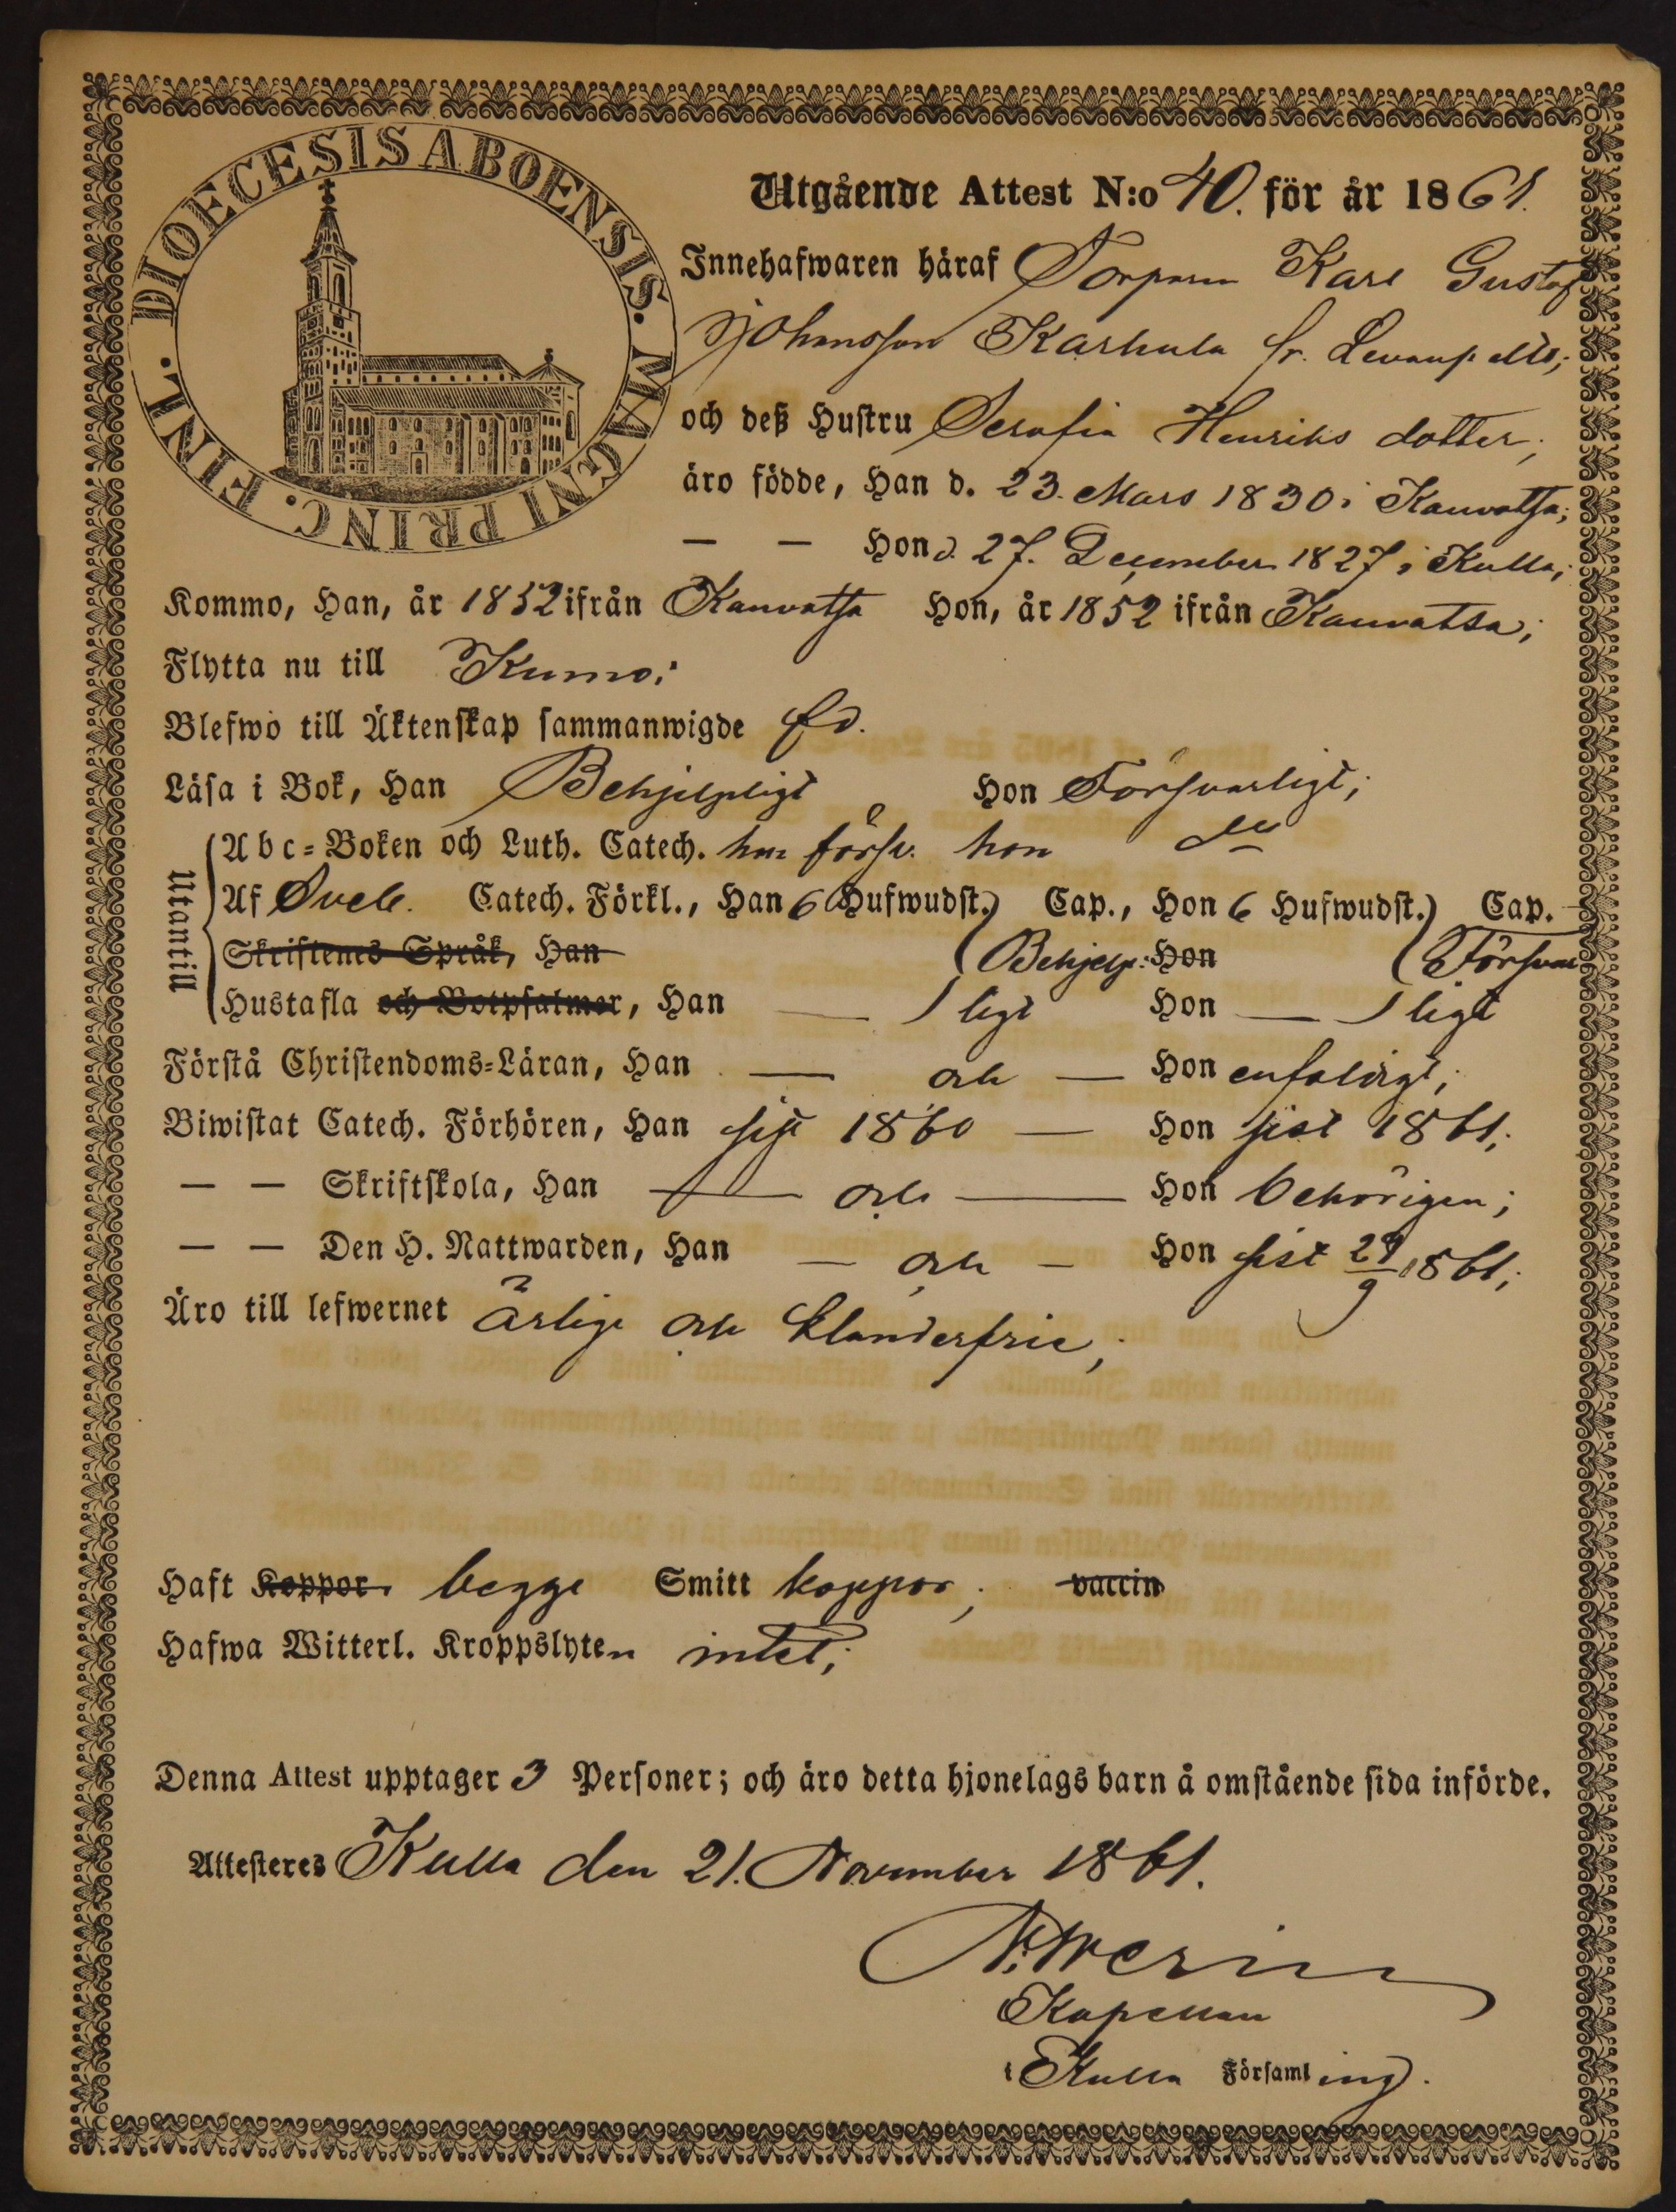 DIOECESIS ABOENSIS. MAGNI PRINC. FINL.
Utgående Attest N:o 40. för år 1861.
Innehafwaren häraf Torparen Karl Gustaf
Johansson Karhula fr.
och deß Hustru Serafia Henriks dotter;
äro födde, Han d. 23. Mars 1830 i Kauvatsa;
— — Hon d. 27. December 1827 i Kulla;
Kommo, Han, år 1852 ifrån Kauvatsa Hon, år 1852 ifrån Kauvatsa;
Flytta nu till Kumo;
Blefwo till Äktenskap sammanwigde
Läsa i Bok, Han Behjelpligt Hon Försvarligt;
Utantill
Abc-Boken och Luth. Catech. han försv. hon
Af Sveb. Catech. Förkl., Han 6 Hufwudst. Cap., Hon 6 Hufwudst. Cap.
Skriftenes Språk, Han Behjelp: Hon Försvar
Hustafla och Botpsalmer, Han — ligt Hon — ligt
Förstå Christendoms-Läran, Han — och — Hon enfaldigt;
Biwistat Catech. Förhören, Han sist 1860 — Hon sist 1861;
— — Skriftskola, Han — och — Hon behörigen;
— — Den H. Nattwarden, Han — och — Hon sist 29/9 1861;
Äro till lefwernet ärlige och klanderfrie;
Haft Koppor begge Smitt koppor; vaccin
Hafwa Witterl. Kroppslyten intet;
Denna Attest upptager 3 Personer; och äro detta hjonelags barn å omstående sida införde.
Attesteres Kulla den 21. November 1861.
Kapellan
i Kulla Församling.